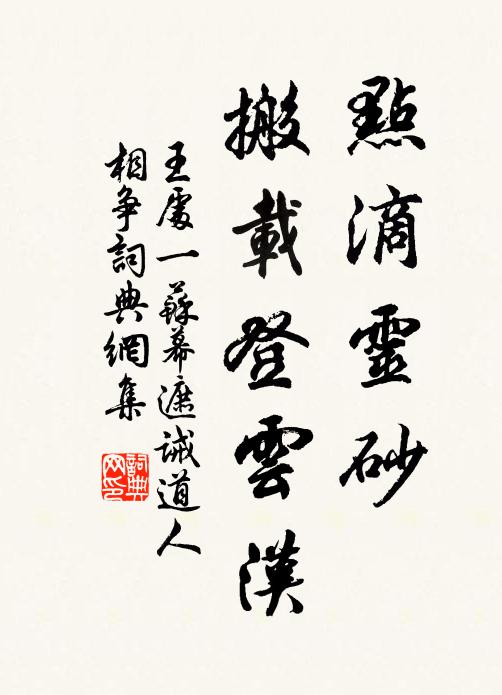 點滴靈砂
搬載登雲漢
王處一蘇幕遮誡道人
相爭詞典網集
詞典
网印